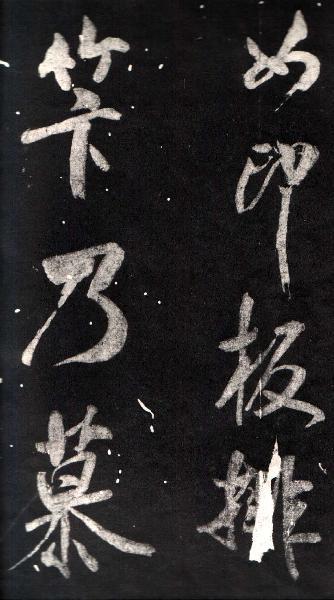 如印板排
笇乃慕